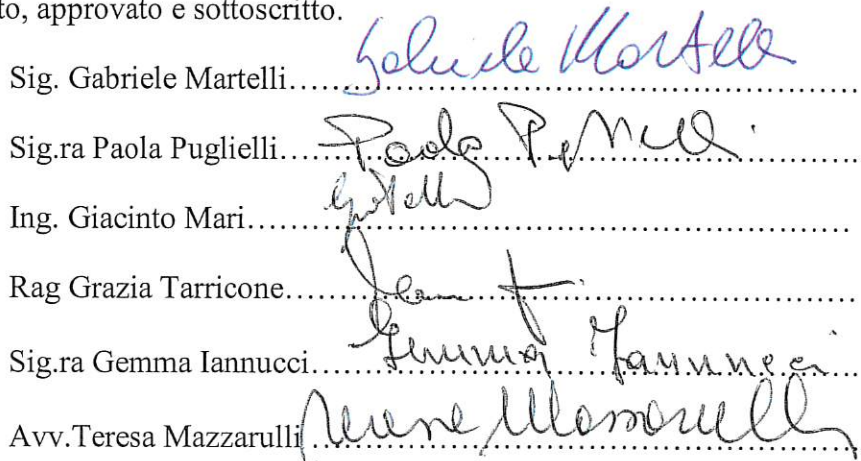 to, approvato e sottoscritto.
Sig. Gabriele Martelli.......... Gabriele Martelli
Sig.ra Paola Puglielli.......... Paola
Ing. Giacinto Mari..........
Rag Grazia Tarricone..........
Sig.ra Gemma Iannucci.......... Gemma Iannucci
Avv.Teresa Mazzarulli.......... Teresa Mazzarulli